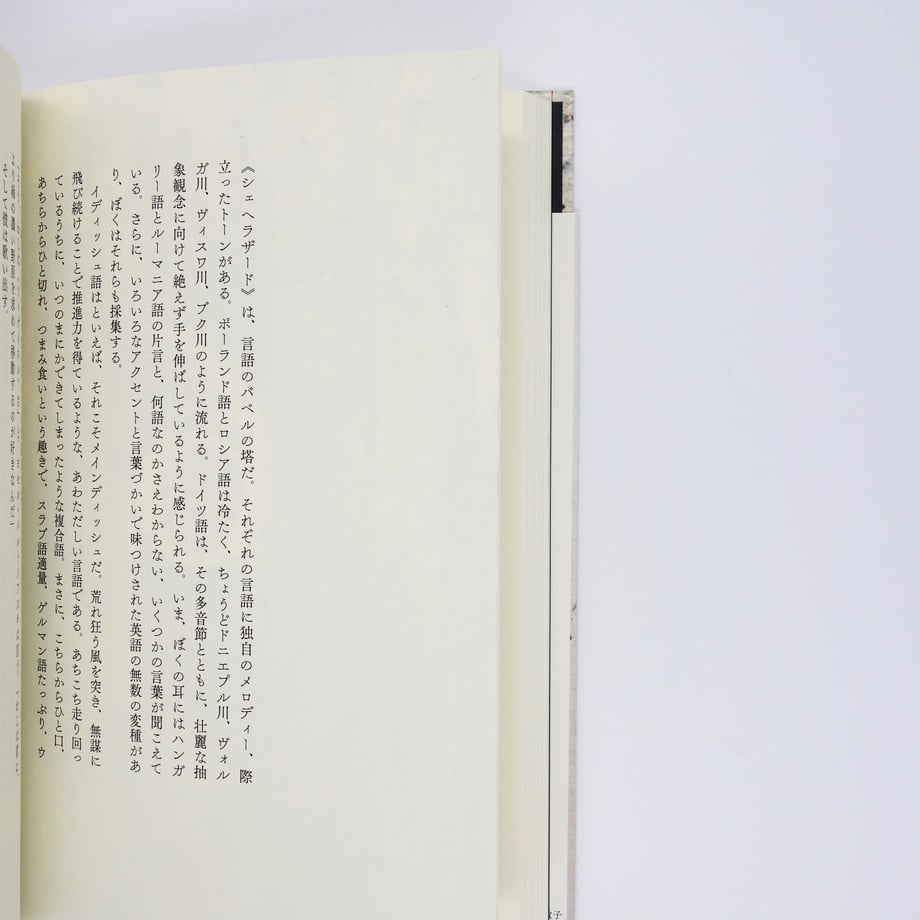 《シェヘラザード》は、言語のバベルの塔だ。それぞれの言語に独自のメロディー、際
立ったトーンがある。ポーランド語とロシア語は冷たく、ちょうどドニエプル川、ヴォル
ガ川、ヴィスワ川、ブク川のように流れる。ドイツ語は、その多音節とともに、壮麗な抽
象観念に向けて絶えず手を伸ばしているように感じられる。いま、ぼくの耳にはハンガ
リー語とルーマニア語の片言と、何語なのかさえわからない、いくつかの言葉が聞こえて
いる。さらに、いろいろなアクセントと言葉づかいで味つけされた英語の無数の変種があ
り、ぼくはそれらも採集する。
イディッシュ語はといえば、それこそメインディッシュだ。荒れ狂う風を突き、無謀に
飛び続けることで推進力を得ているような、あわただしい言語である。あちこち走り回っ
ているうちに、いつのまにかできてしまったような複合語。まさに、こちらからひと口、
あちらからひと切れ、つまみ食いという趣きで、スラブ語適量、ゲルマン語たっぷり、ウ
より緑の濃い野原を求めて移動するのが好きなんだ」
そして彼は歌い出す。